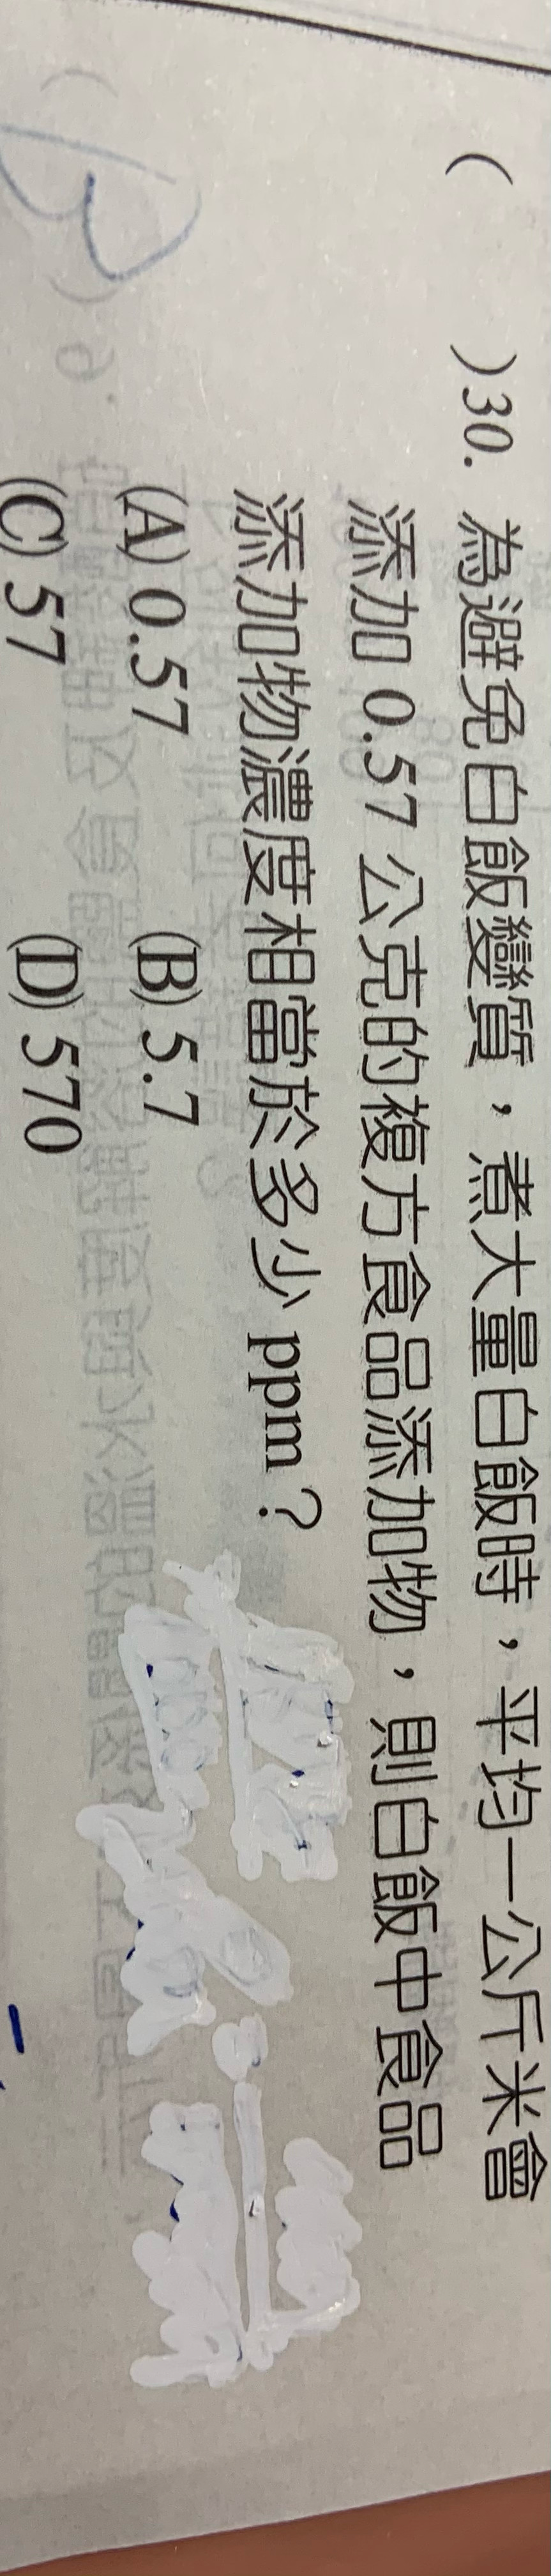 ( )30. 為避免白飯變質，煮大量白飯時，平均一公斤米會
添加 0.57 公克的複方食品添加物，則白飯中食品
添加物濃度相當於多少 ppm？
(A) 0.57 (B) 5.7
(C) 57 (D) 570
B